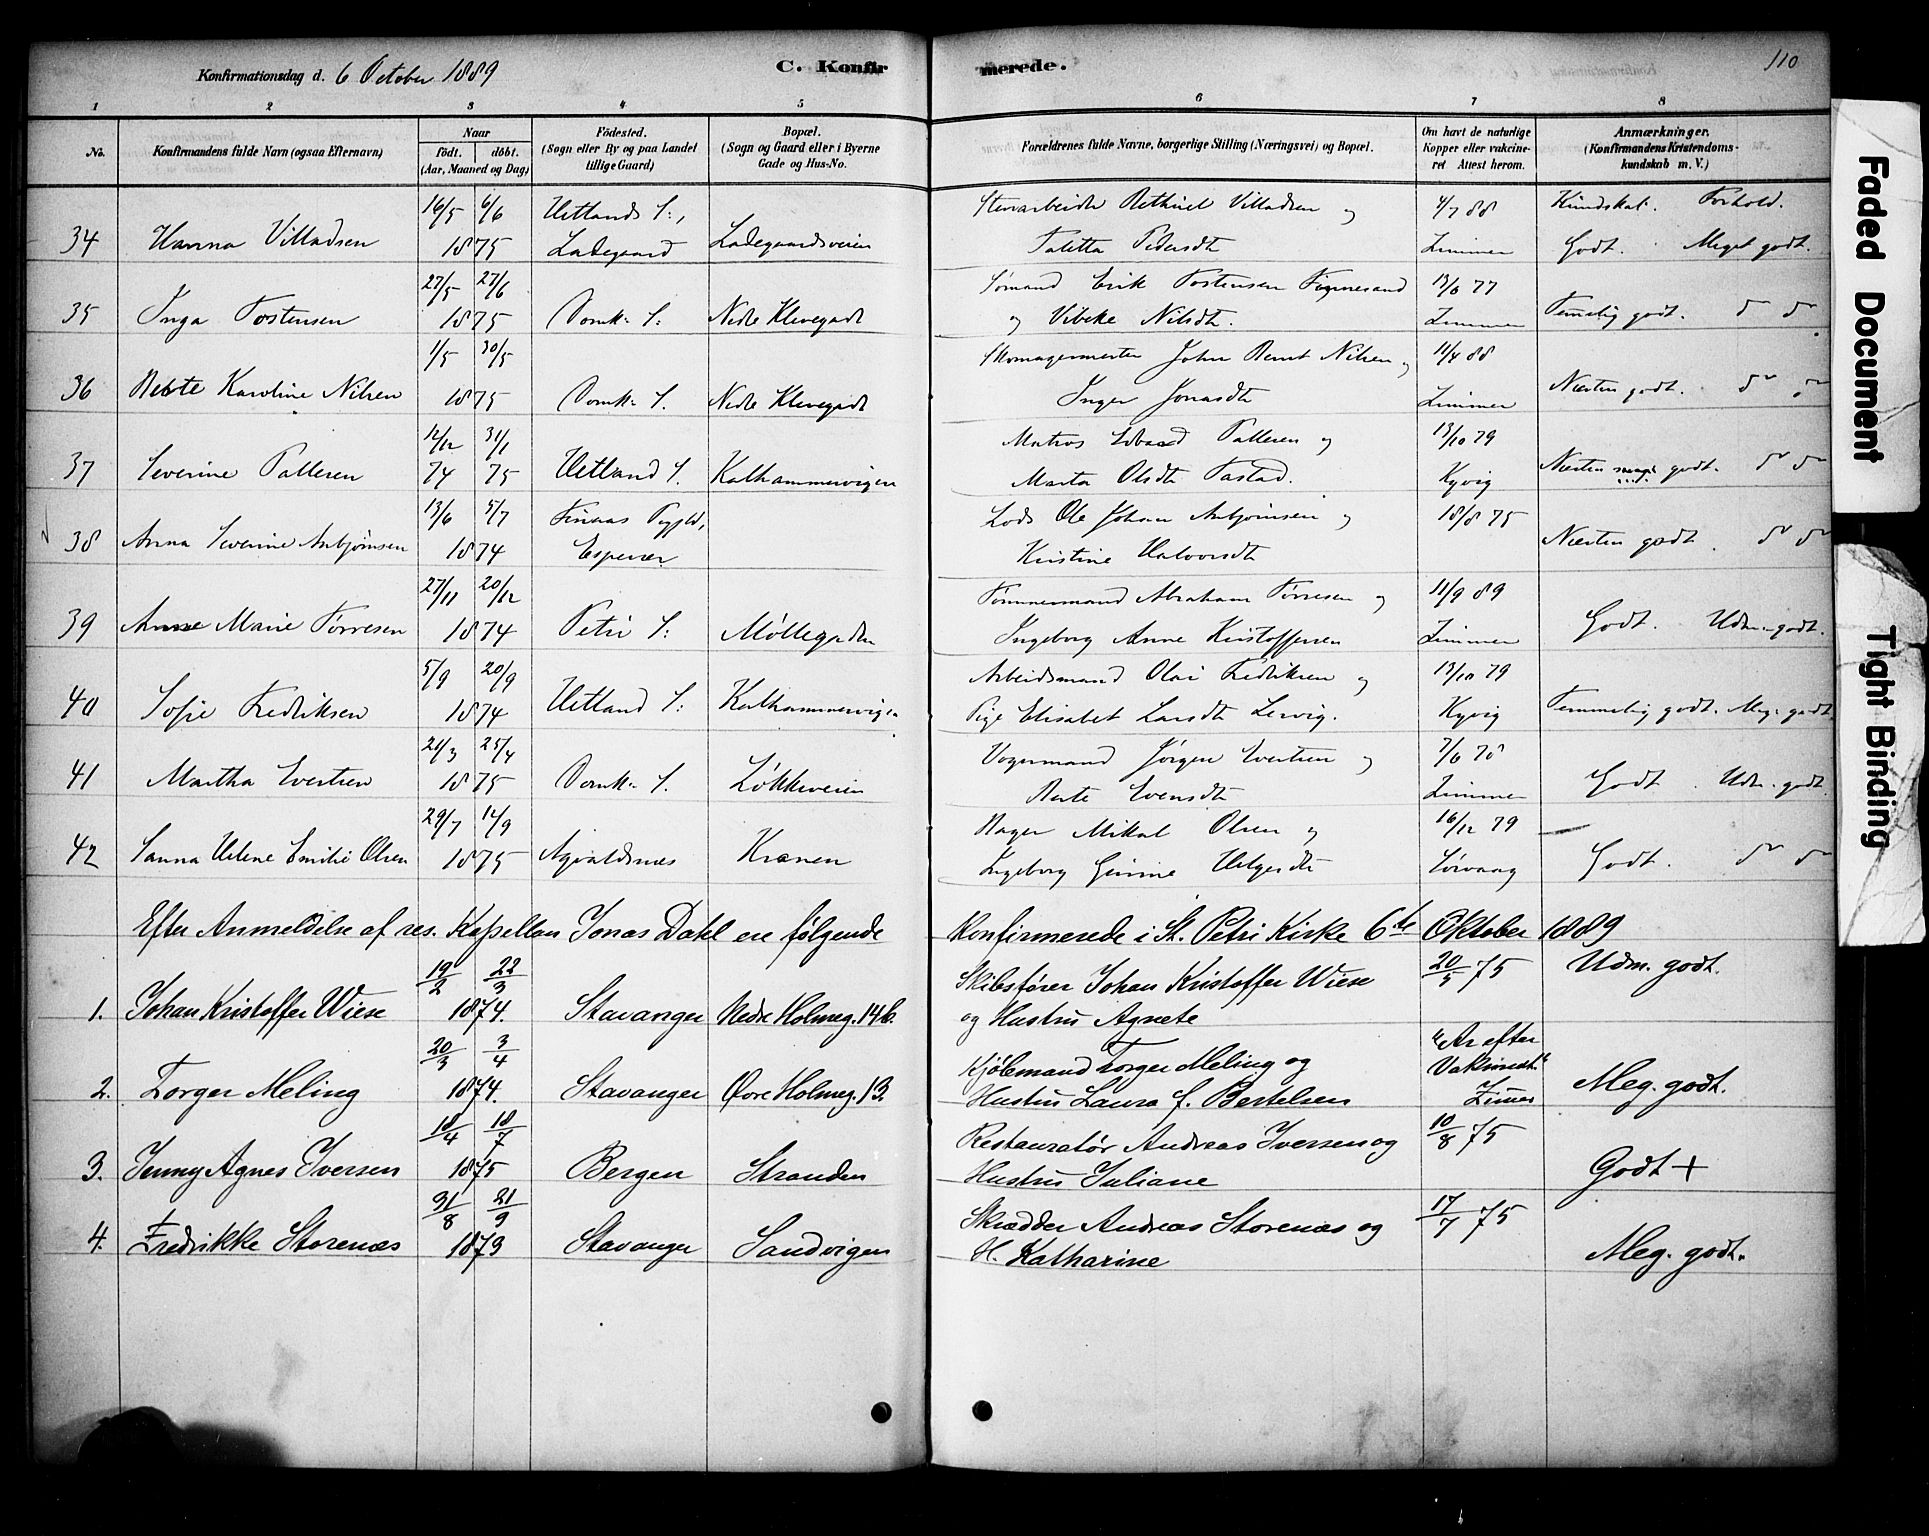 110
Konfirmationsdag d. 6 October 1889
C. Konfirmerede.
1 2 3 4 5 6 7 8
No.
Konfirmandens fulde Navn (ogsaa Efternavn)
Naar
födt. döbt.
(Aar, Maaned og Dag)
Födested.
(Sogn eller By og paa Landet
tillige Gaard)
Bopæl.
(Sogn og Gaard eller i Byerne
Gade og Hus-No.
Forældrenes fulde Navne, borgerlige Stilling (Næringsvei) og Bopæl.
Om havt de naturlige
Kopper eller vakcine-
ret Attest herom.
Anmærkninger.
(Konfirmandens Kristendoms-
kundskab m. V.)
16/5 6/6 Hetlands S:, Stenarbeider Villadsen og 4/7 88 Kundskab. Forhold.
34 Hanna Villadsen 1875 Ladegaard Ladegaardsveien Talette Pedersdt Zimmer Godt. Meget godt.
27/5 27/6 Sømand Erik Tostensen 13/6 77
35 Inga Tostensen 1875 Domk. S: Nedre Klevegade og Vibeke Nilsdt. Zimmer Temmelig godt. do do
1/5 30/5 Skomagermester John Bernt Nilsen og 11/4 88
36 Berte Karoline Nilsen 1875 Domk. S. Nedre Klevegade Inger Jonasdt Zimmer Næsten godt. do do
12/12 31/1 Matros Edvard Pallesen og 13/10 79
37 Severine Pallesen 74 75 Hetland S. Kalhammervigen Marta Olsdt Tastad. Kyvig Næsten meget godt. do do
13/6 5/7 Finnaas Prgjld, Lods Ole Johan Anbjørnsen og 18/8 75
38 Anna Severine Anbjørnsen 1874 Espevær Kristine Halvorsdt Næsten godt. do do
27/11 20/12 Tømmermand Abraham Tørresen og 11/9 89
39 Anne Marie Tørresen 1874 Petri S: Møllegaden Ingeborg Anne Kristoffersen Zimmer Godt. Udm. godt.
5/9 20/9 Arbeidsmand Olai Fredriksen og 13/10 79
40 Sofie Fredriksen 1874 Hetland S: Kalhammervigen Pige Elisabet Larsdt Lervig. Kyvig Temmelig godt. Meg. godt
21/3 25/4 Vognmand Jørgen Evertsen og
41 Martha Evertsen 1875 Domk. S. Løkkeveien Berte Evensdt Zimmer Godt. Udm. godt.
29/7 14/9 Bager Mikal Olsen og 16/12 79
42 Sanna Helene Emilie Olsen 1875 Agvaldsnes Kranen Ingeborg Gurine Helgesdt Sørvaag Godt. do do
Efter Anmeldelse af res. Kapellan Jonas Dahl ere følgende Konfirmerede i St. Petri Kirke 6te Oktober 1889
19/2 22/3 Skibsfører Johan Kristoffer Wiese 20/5 75 Udm. godt.
1. Johan Kristoffer Wiese 1874. Stavanger Nedre Holmeg. 14b. og Hustru Agnete
20/3 3/4 Kjøbmand Torger Meling og "Ar efter Vakcinat."
2. Torger Meling 1874. Stavanger Øvre Holmeg. 13. Hustru Laura f. Bertelsen Zimer Meg. godt.
18/4 18/7 Restauratør Andreas Iversen og 10/8 75
3. Jenny Agnes Iversen 1875 Bergen Stranden Hustru Juliane Godt +
31/8 21/9 Skrædder Andreas Storenæs og 17/7 75
4. Fredrikke Storenæs 1873 Stavanger Sandvigen H. Katharine Meg. godt.
Faded Document
Tight Binding